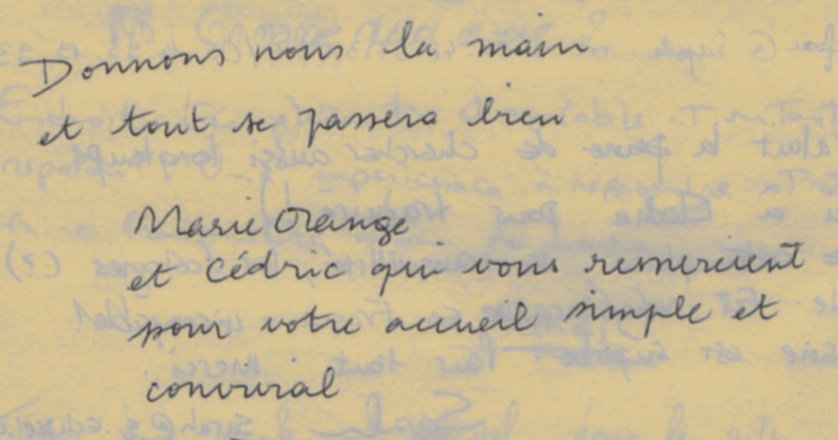 Donnons nous la main
et tout se passera bien
Marie Orange
et Cédric qui vous remercient
pour votre accueil simple et
convivial